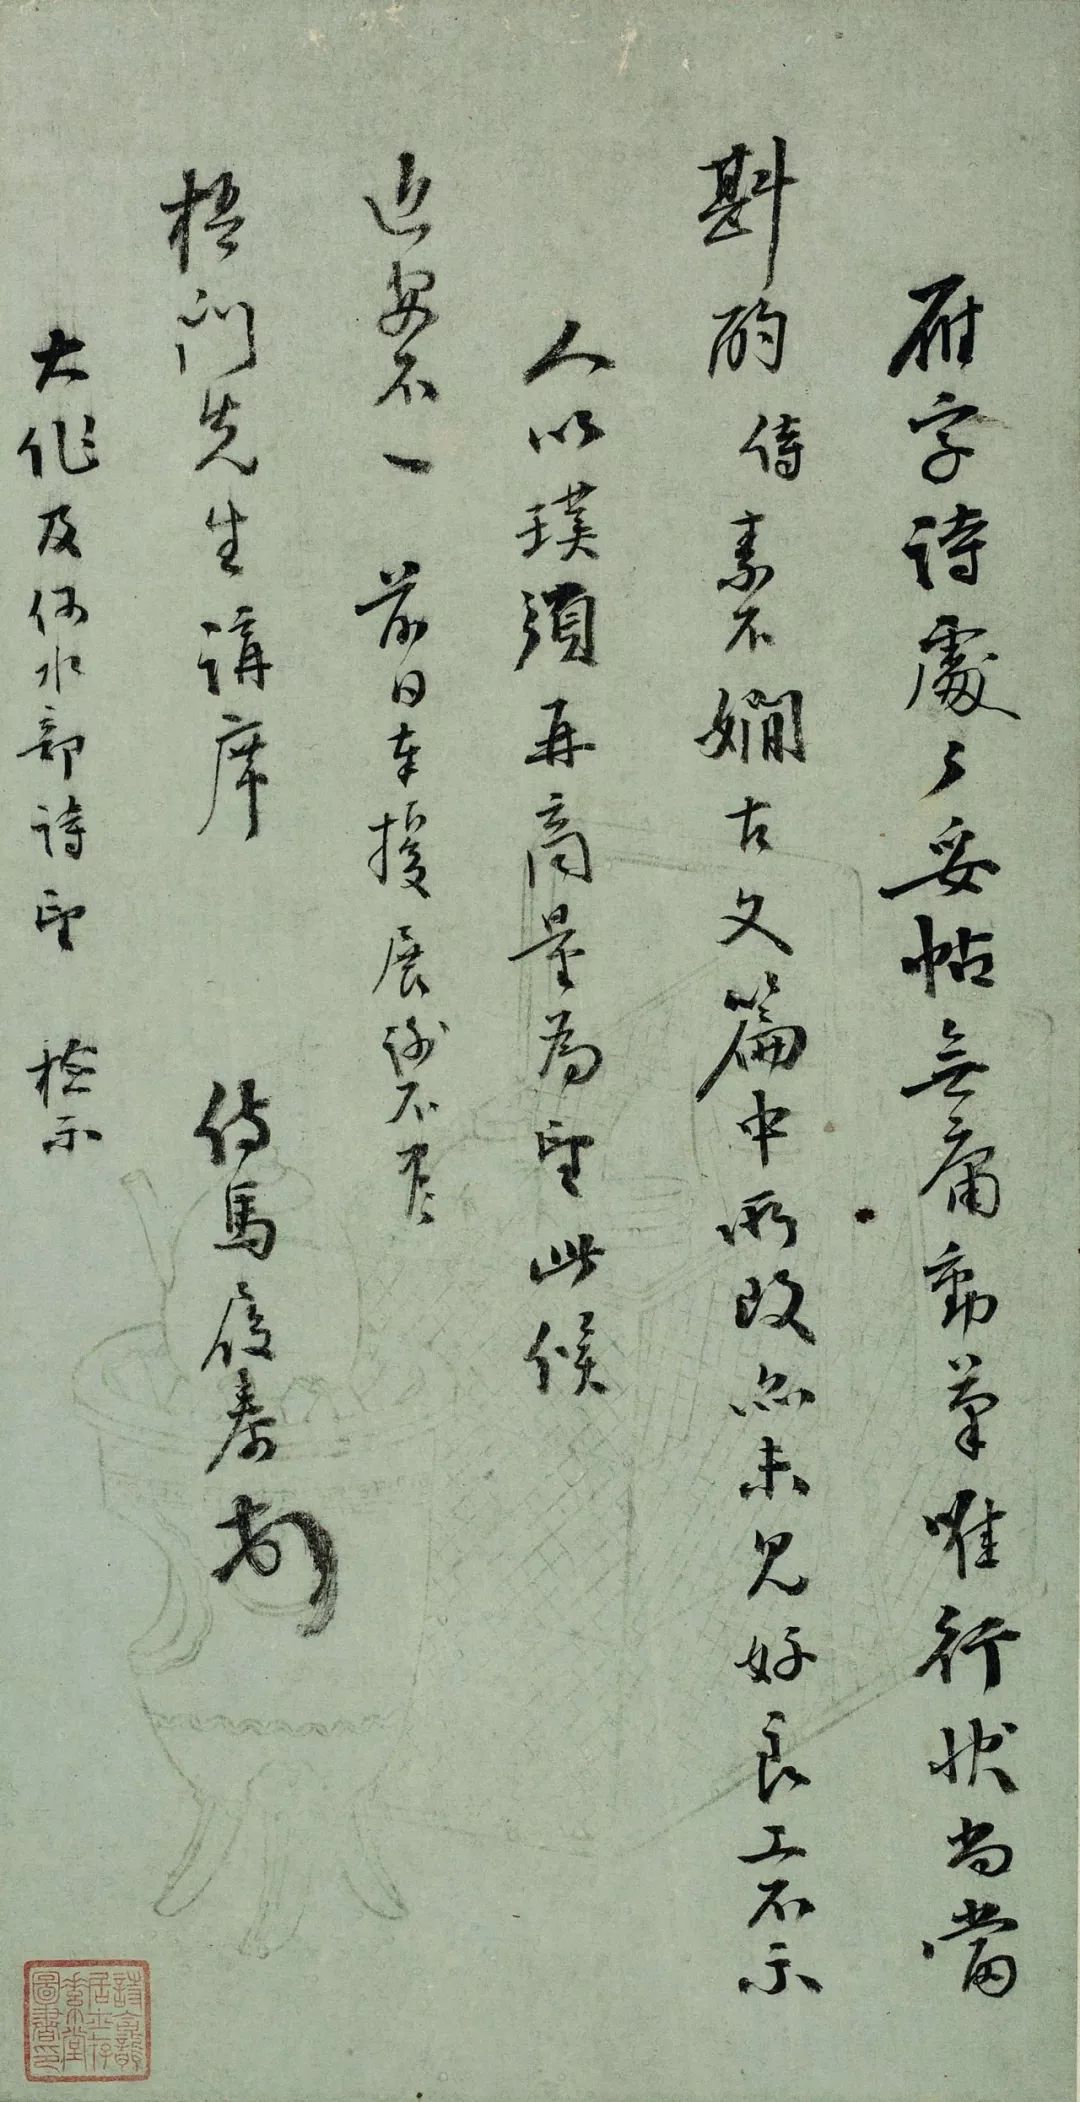 雁字詩處々妥帖無庸動筆唯行狀尚當
斟酌侍素不嫻古文篇中所改亦未見好良工不示
人以璞須再商量為望此候
近安不一 前日奉擾展謝不盡
梧門先生講席 侍馬履泰頓
大作及何水部詩望 檢示